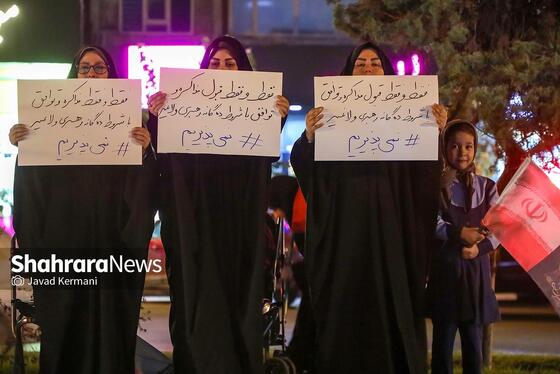 فقط و فقط مذاکره و توافق
با شروط ده گانه رهبری و لاغیر
# می پذیریم
فقط و فقط قبول مذاکره و
توافق با شروط ده گانه رهبری ولاغیر
# می پذیریم
فقط و فقط قبول مذاکره و توافق
با شروط ده گانه رهبری ولاغیر
# می پذیریم
ShahraraNews
Javad Kermani